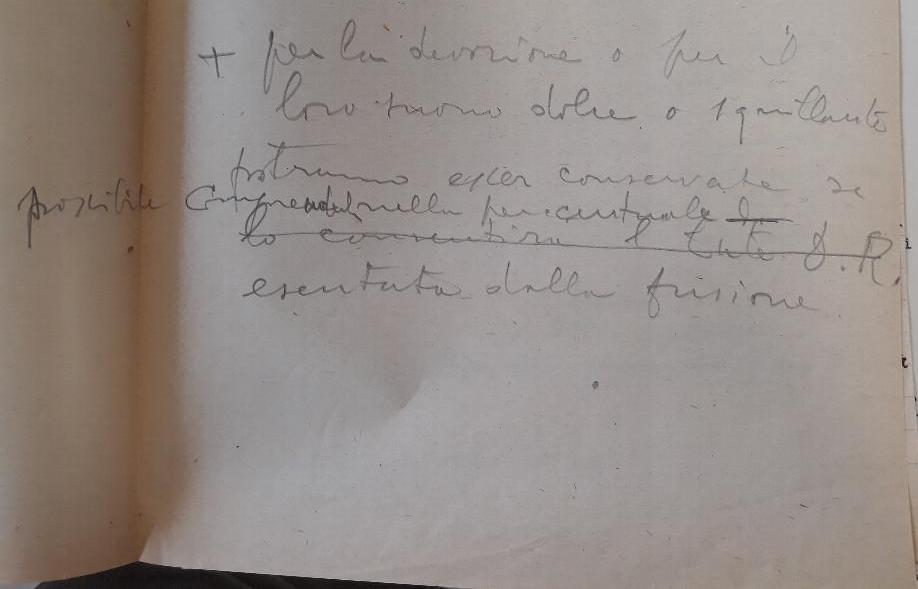 + per la devozione o per il
loro suono dolce o squillante
potranno esser conservate se
possibile comprendendole nella percentuale
lo consentirà l'Ente D.R.
esentata dalla fusione